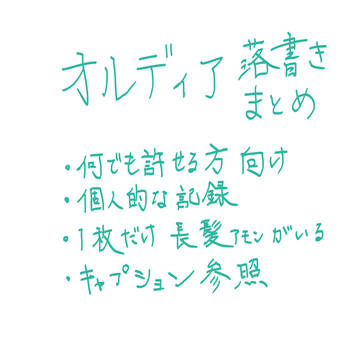 オルディア 落書き
まとめ
・何でも許せる方向け
・個人的な記録
・1枚だけ 長髪アモンがいる
・キャプション参照